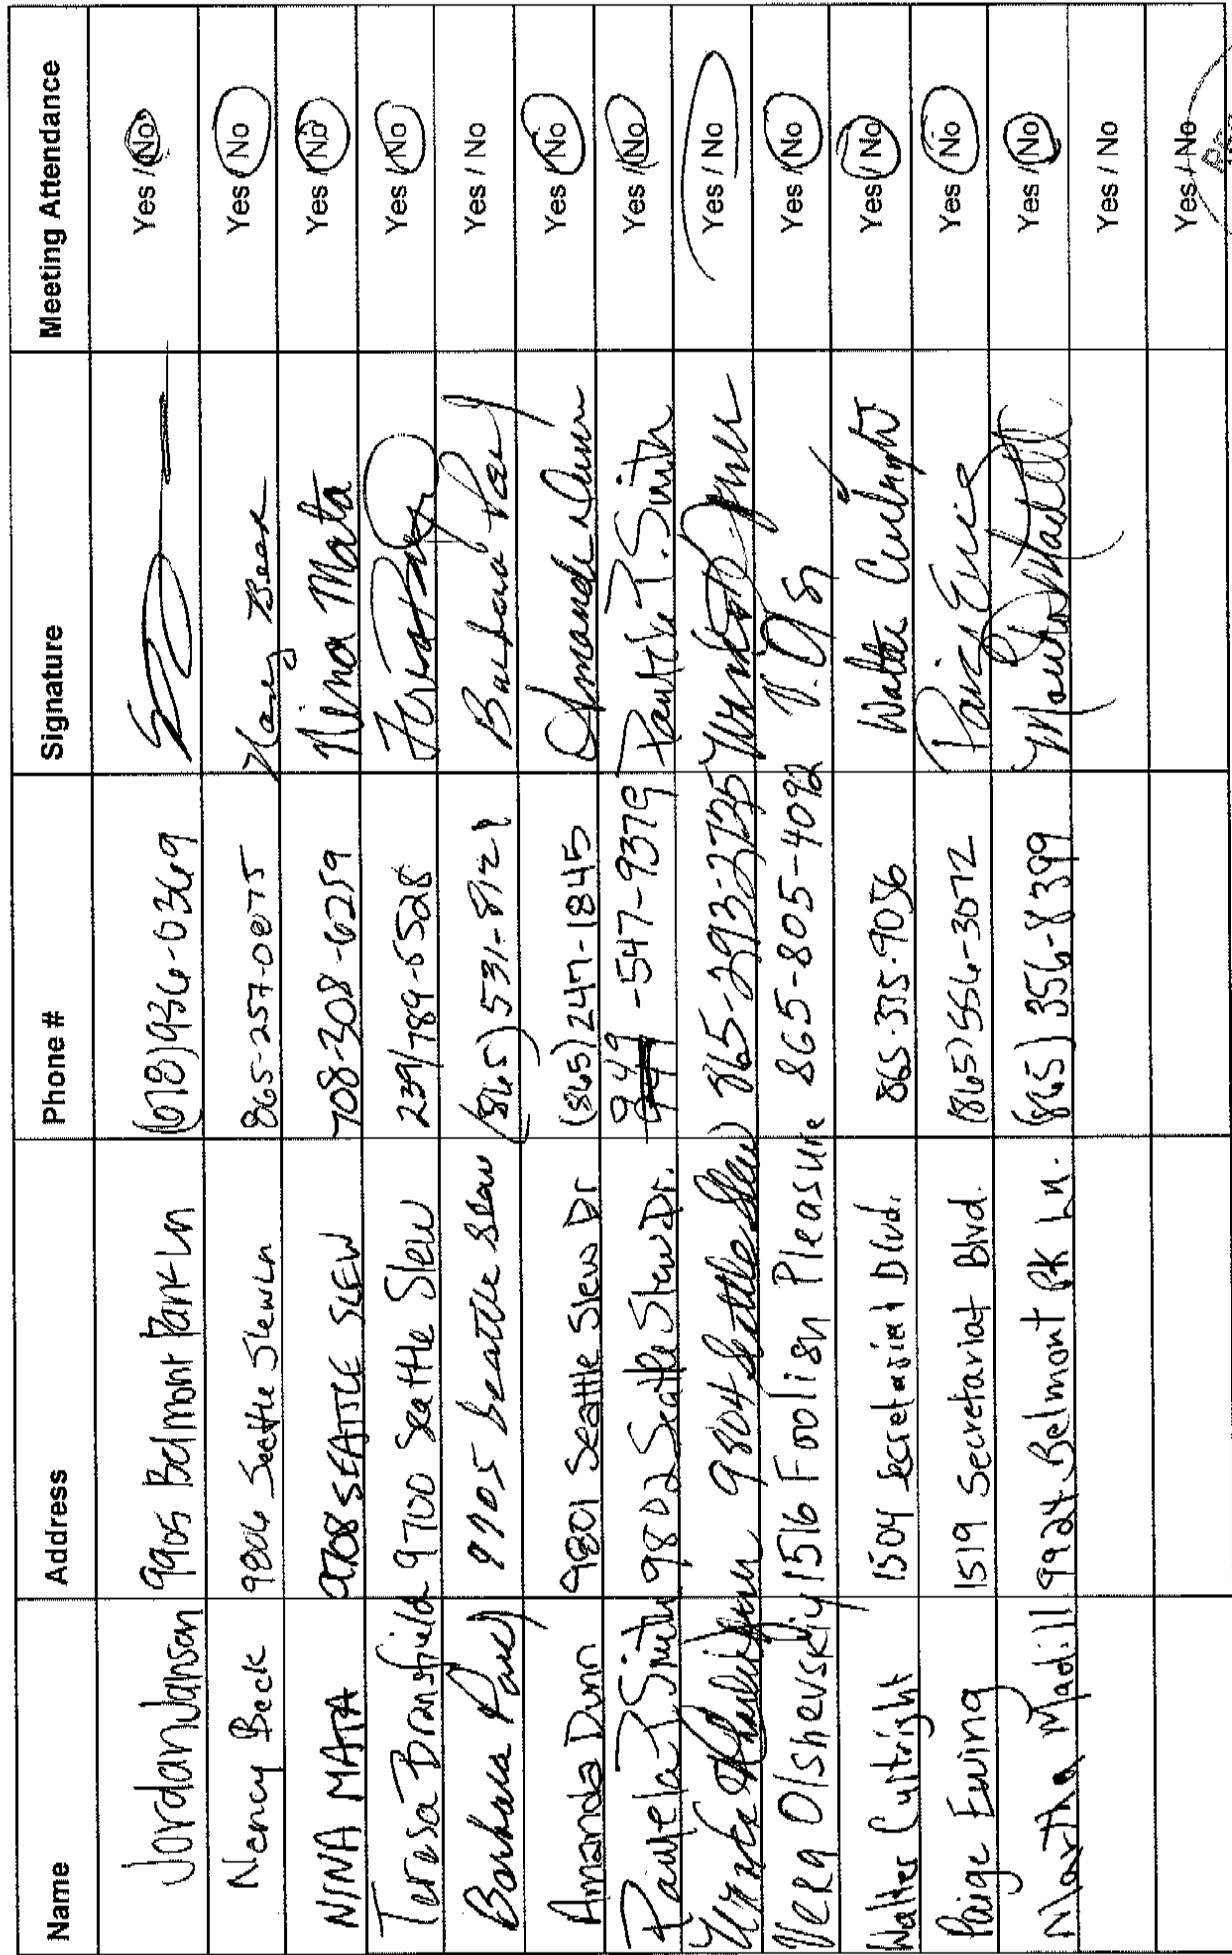 Name Address Phone # Signature Meeting Attendance
Jordan Janson 9905 Belmont Park Ln (678) 936-0369 Yes / No
Nancy Beck 9806 Seattle Slew Ln 865-257-0875 Nancy Beck Yes / No
NINA MATA 9708 SEATTLE SLEW 708-308-6259 Nina Mata Yes / No
Teresa Bransfield 9700 Seattle Slew 239/789-5528 Yes / No
Barbara 9705 Seattle Slew (865) 531-8121 Barbara Yes / No
Amanda Dunn 9801 Seattle Slew Dr (865) 247-1845 Amanda Dunn Yes / No
Pamela P Smith 9802 Seattle Slew Dr. 949-547-9379 Pamela P. Smith Yes / No
9804 Seattle Slew 865-293-2735 Yes / No
Vera Olshevskiy 1516 Foolish Pleasure 865-805-4092 Yes / No
Walter Cultright 1504 Secretariat Blvd. 865-335-9056 Walter Yes / No
Paige Ewing 1519 Secretariat Blvd. (865) 556-3072 Yes / No
Martha Madill 9924 Belmont Pk Ln. (865) 356-8399 Martha Madill Yes / No
Yes / No
Yes / No